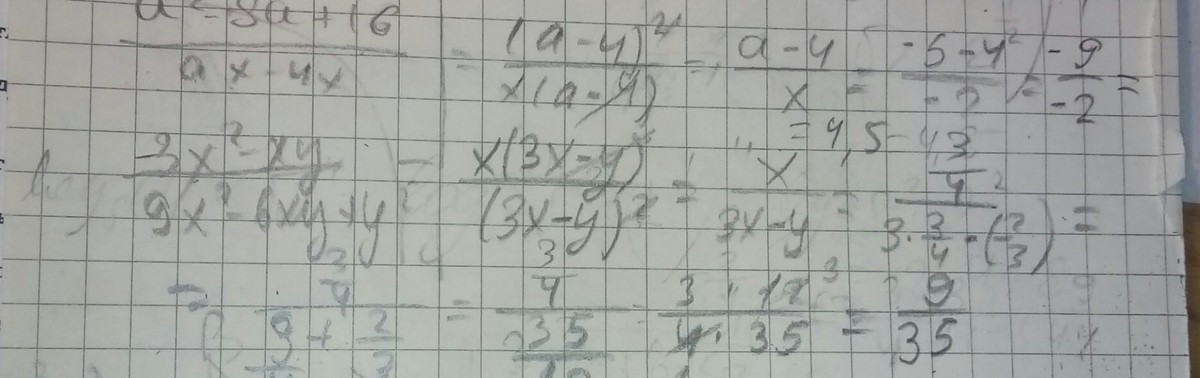 a² - 8a + 16 / ax - 4x = (a - 4)² / x(a - 4) = a - 4 / x = -5 - 4 / -2 = -9 / -2 =
= 4,5
3x² - xy / 9x² - 6xy + y² = x(3x - y) / (3x - y)² = x / 3x - y = 3/4 / 3 · 3/4 - (2/3) =
= 3/4 / 9/4 + 2/3 = 3/4 / 35/12 = 3 · 12 / 4 · 35 = 9/35